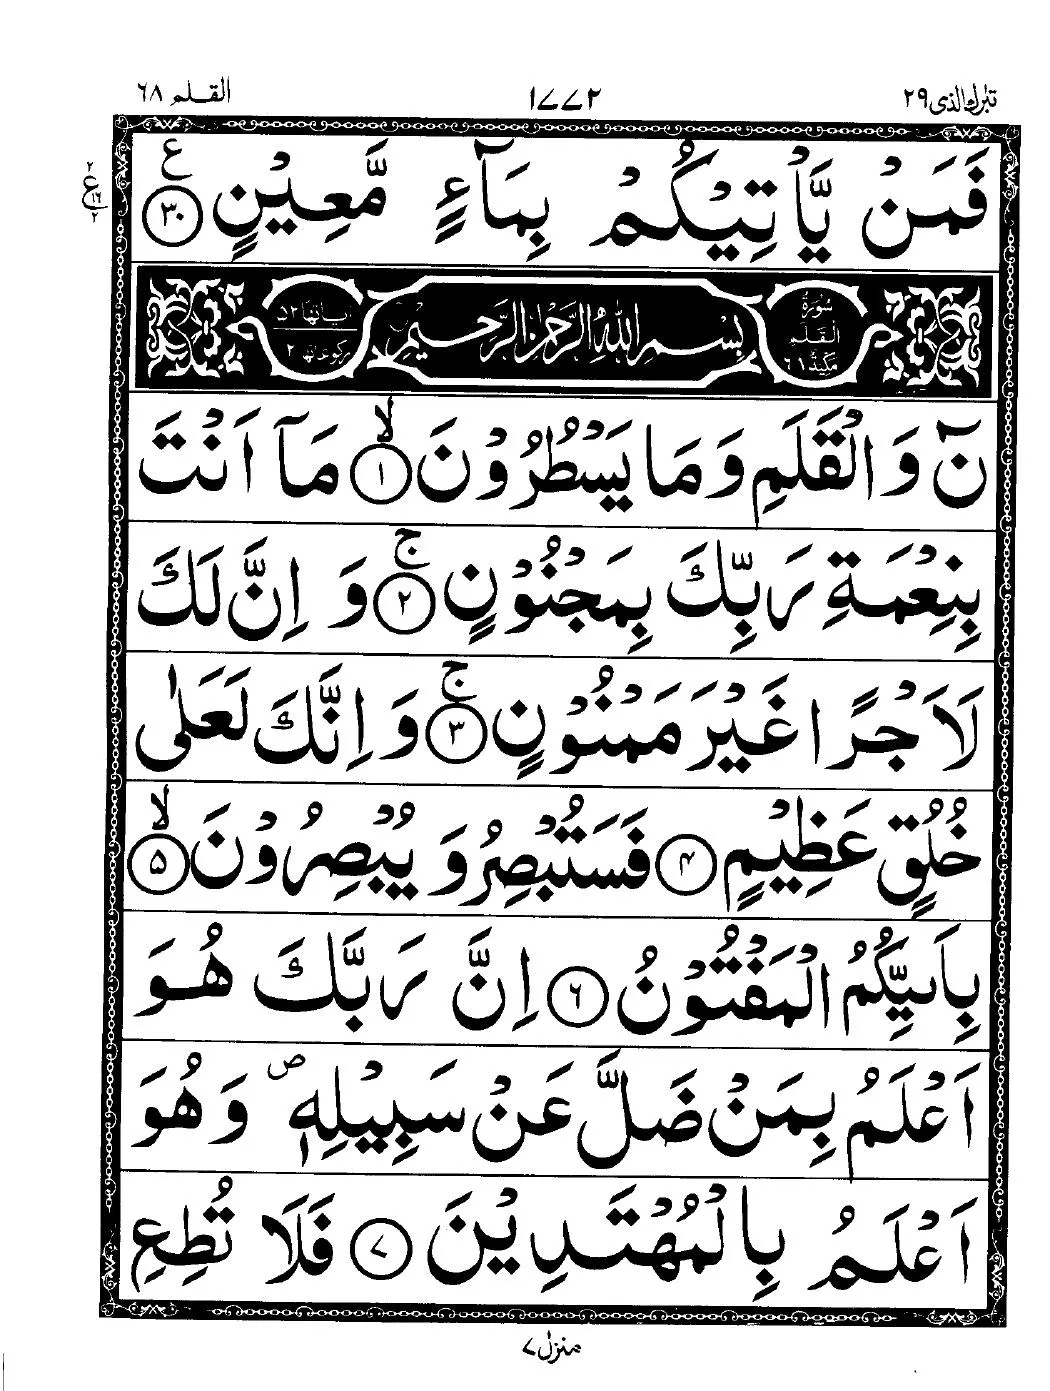 تبٰرك الذی ۲۹
۱۷۷۲
القلم ۶۸
فَمَنْ يَّاْتِيْكُمْ بِمَآءٍ مَّعِيْنٍ ۳۰ ع
۲ ع ۱۶ ۲
سُوْرَةُ الْقَلَمِ مَكِّيَّةٌ
بِسْمِ اللّٰهِ الرَّحْمٰنِ الرَّحِيْمِ
اٰيَاتُهَا ۵۲ رُكُوْعَاتُهَا ۲
نٓ وَالْقَلَمِ وَمَا يَسْطُرُوْنَ ۱ۙ مَآ اَنْتَ
بِنِعْمَةِ رَبِّكَ بِمَجْنُوْنٍ ۲ۚ وَ اِنَّ لَكَ
لَاَجْرًا غَيْرَ مَمْنُوْنٍ ۳ۚ وَ اِنَّكَ لَعَلٰى
خُلُقٍ عَظِيْمٍ ۴ فَسَتُبْصِرُ وَ يُبْصِرُوْنَ ۵ۙ
بِاَىيِّكُمُ الْمَفْتُوْنُ ۶ اِنَّ رَبَّكَ هُوَ
اَعْلَمُ بِمَنْ ضَلَّ عَنْ سَبِيْلِهٖ ۪ وَ هُوَ
اَعْلَمُ بِالْمُهْتَدِيْنَ ۷ فَلَا تُطِعِ
منزل ۷